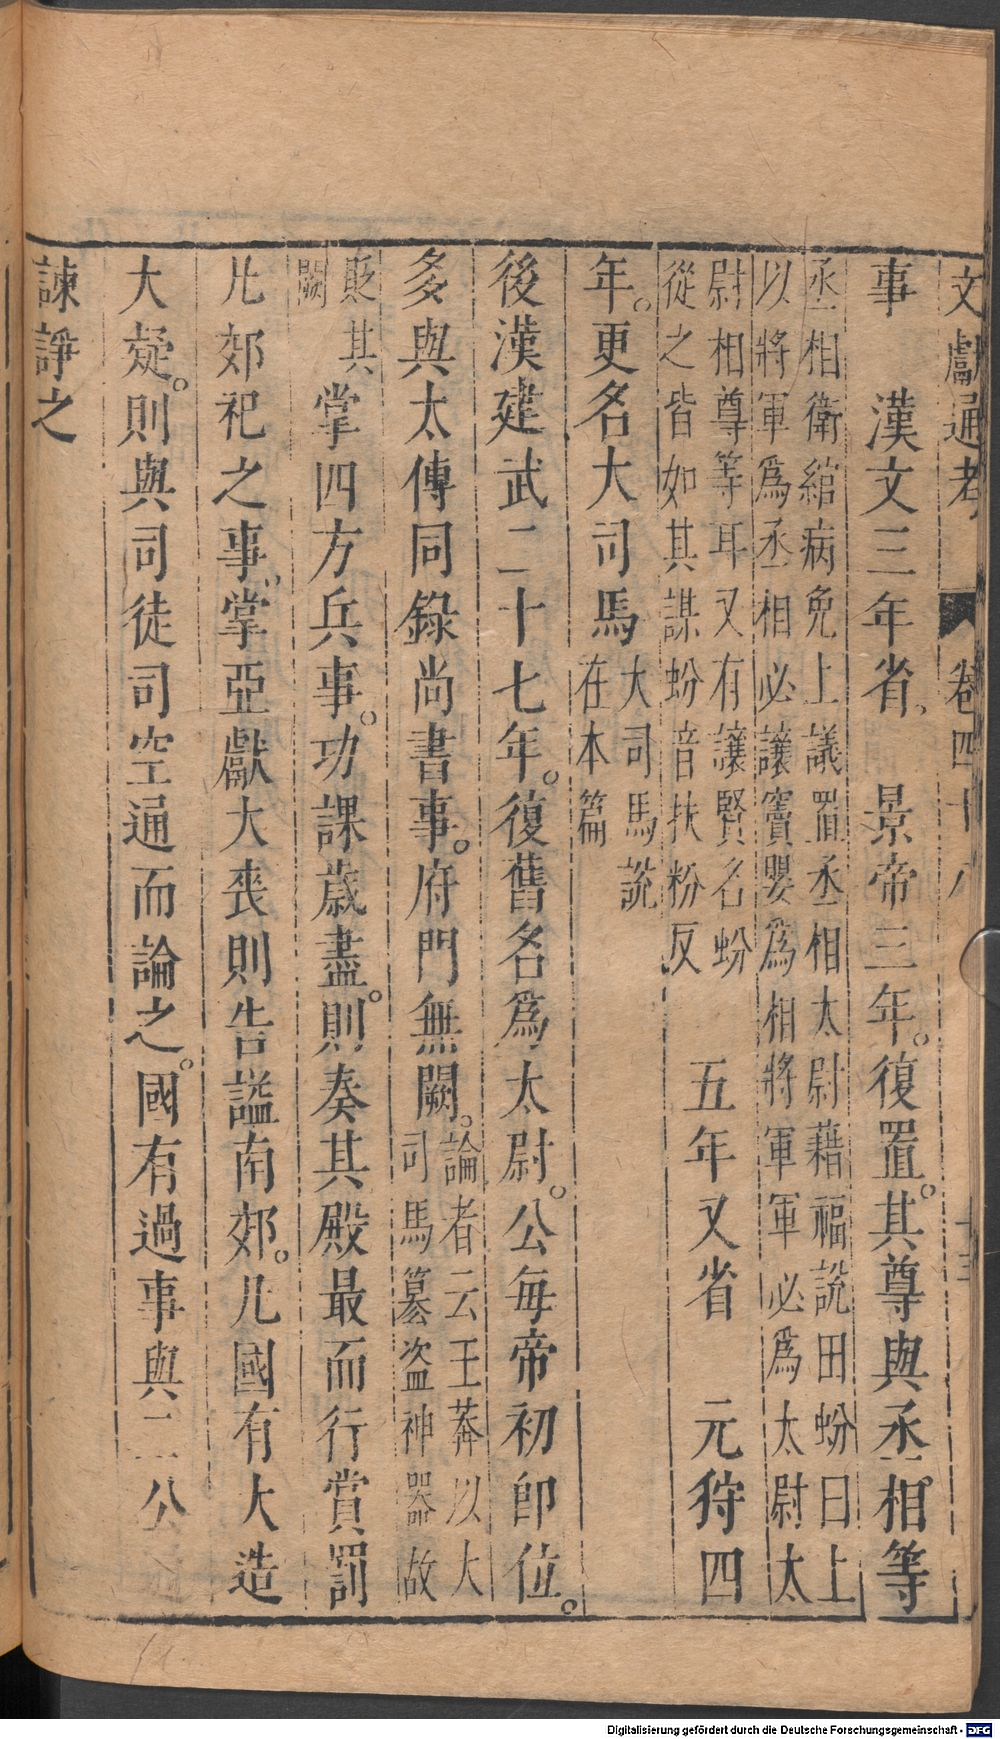 文獻通考 卷四十八
事 漢文三年省 景帝三年。復置。其尊與丞相等
丞相衛綰病免上議置丞相太尉藉福說田蚡曰上
以將軍爲丞相必讓竇嬰爲相將軍軍必爲太尉太
尉相尊等耳又有讓賢名蚡
從之皆如其謀蚡音扶粉反 五年又省 元狩四
年。更名大司馬
大司馬說
在本篇
後漢建武二十七年。復舊名爲太尉。公每帝初即位。
多與太傳同錄尚書事。府門無闕。
論者云王莽以大
司馬簒盜神器故
貶其
闕
掌四方兵事。功課歲盡。則奏其殿最而行賞罰
凡郊祀之事。掌亞獻大喪則告謚南郊。凡國有大造
大疑。則與司徒司空通而論之。國有過事與二公
諫諍之
Digitalisierung gefördert durch die Deutsche Forschungsgemeinschaft - DFG